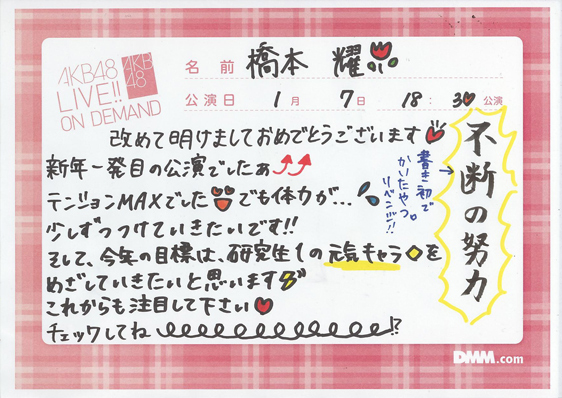 AKB48
LIVE!!
ON DEMAND
AKB
48
名前 橋本 耀
公演日 1月 7日 18:30 公演
改めて明けましておめでとうございます
新年一発目の公演でしたぁ
テンションMAXでした でも体力が...
少しずつつけていきたいです!!
そして、今年の目標は、研究生1の元気キャラを
めざしていきたいと思います
これからも注目して下さい
チェックしてね !?
書き初で
かいたやつ。
リベンジ!!
不断の努力
DMM.com